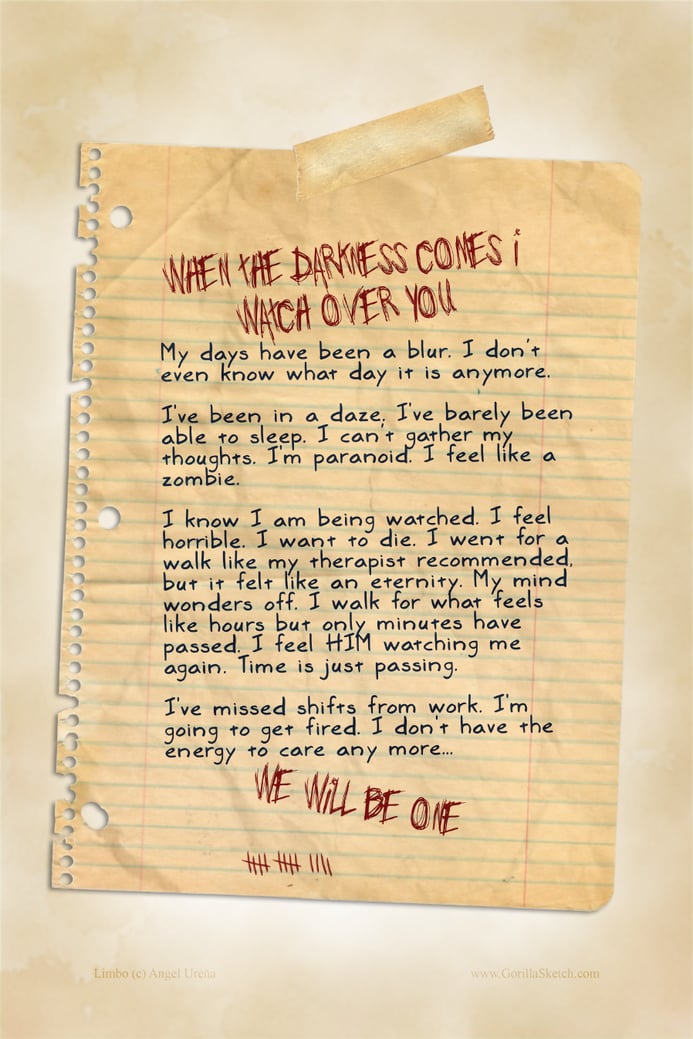 WHEN THE DARKNESS COMES i
WATCH OVER YOU
My days have been a blur. I don't
even know what day it is anymore.
I've been in a daze, I've barely been
able to sleep. I can't gather my
thoughts. I'm paranoid. I feel like a
zombie.
I know I am being watched. I feel
horrible. I want to die. I went for a
walk like my therapist recommended,
but it felt like an eternity. My mind
wonders off. I walk for what feels
like hours but only minutes have
passed. I feel HIM watching me
again. Time is just passing.
I've missed shifts from work. I'm
going to get fired. I don't have the
energy to care any more...
WE WiLL BE ONE
Limbo (c) Angel Ureña
www.GorillaSketch.com